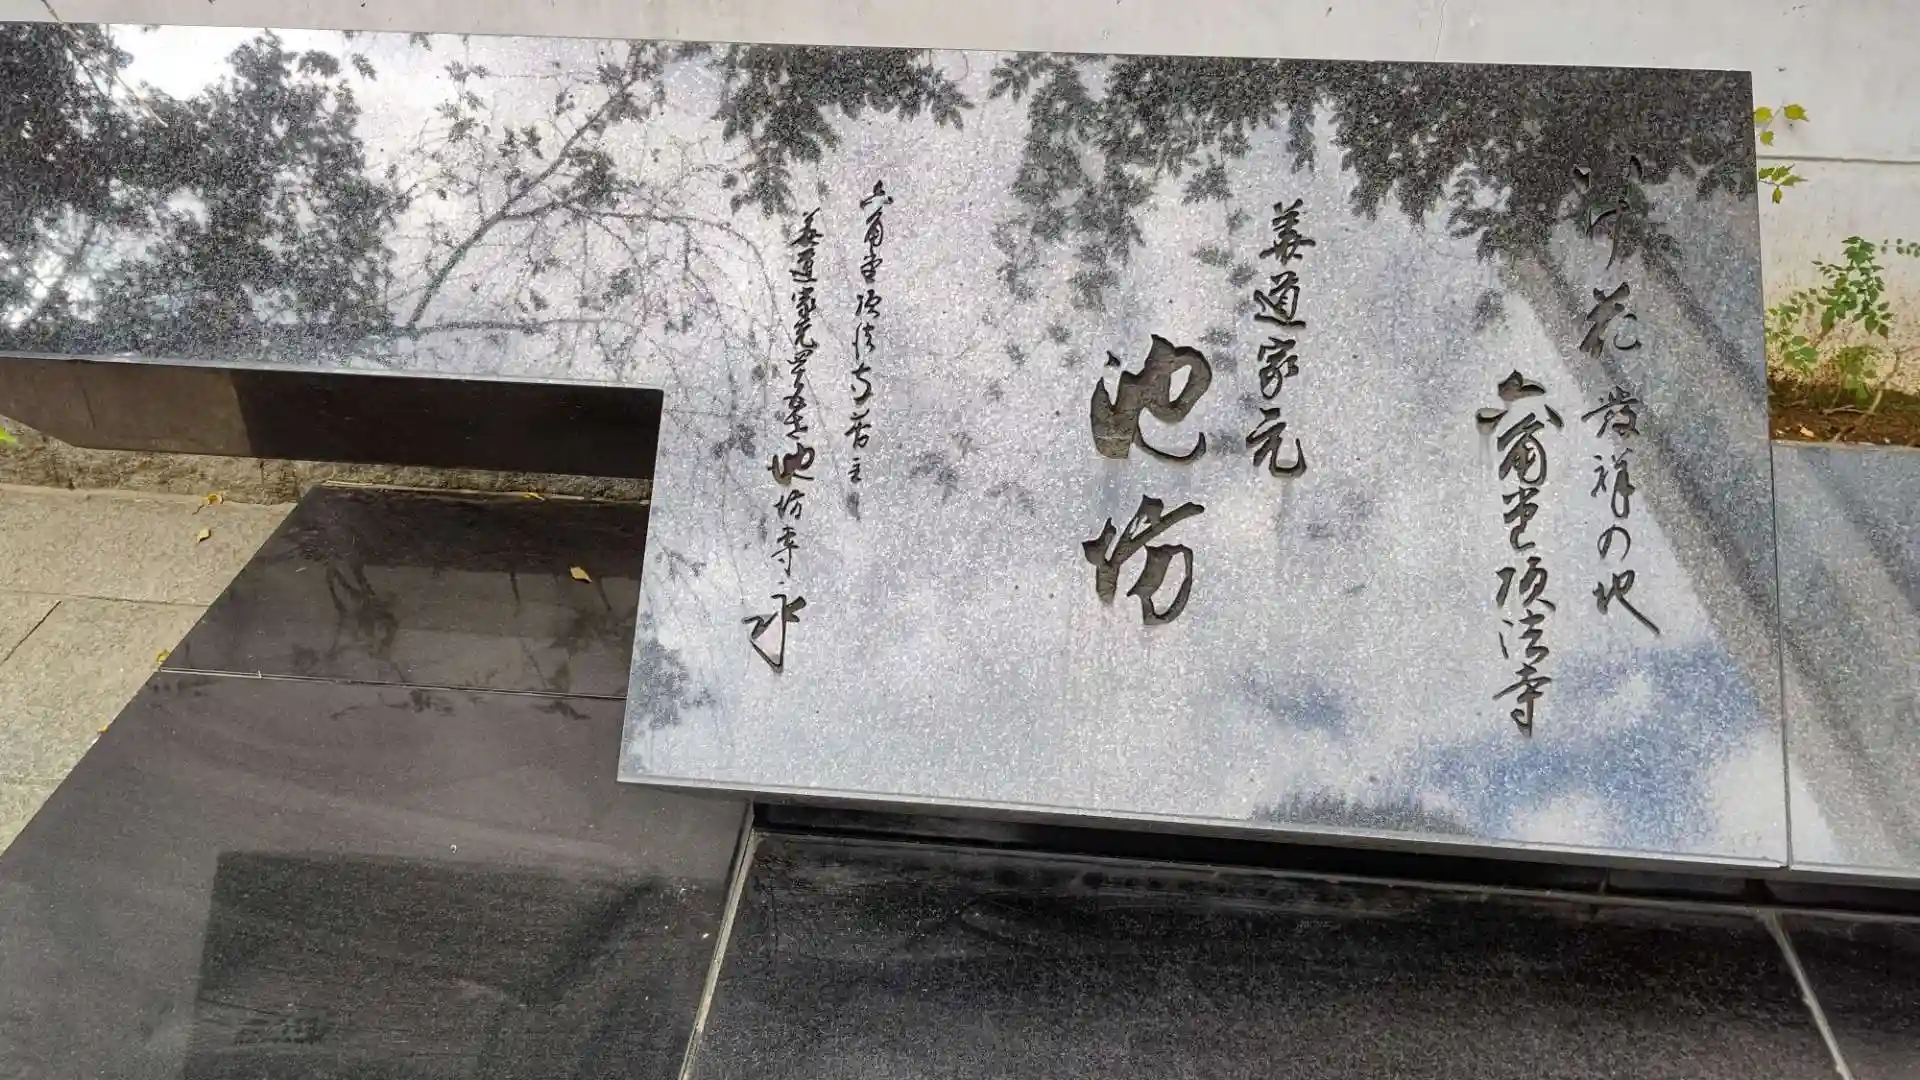 いけ花発祥の地
六角堂頂法寺
華道家元
池坊
六角堂頂法寺
華道家元四十五世池坊専永